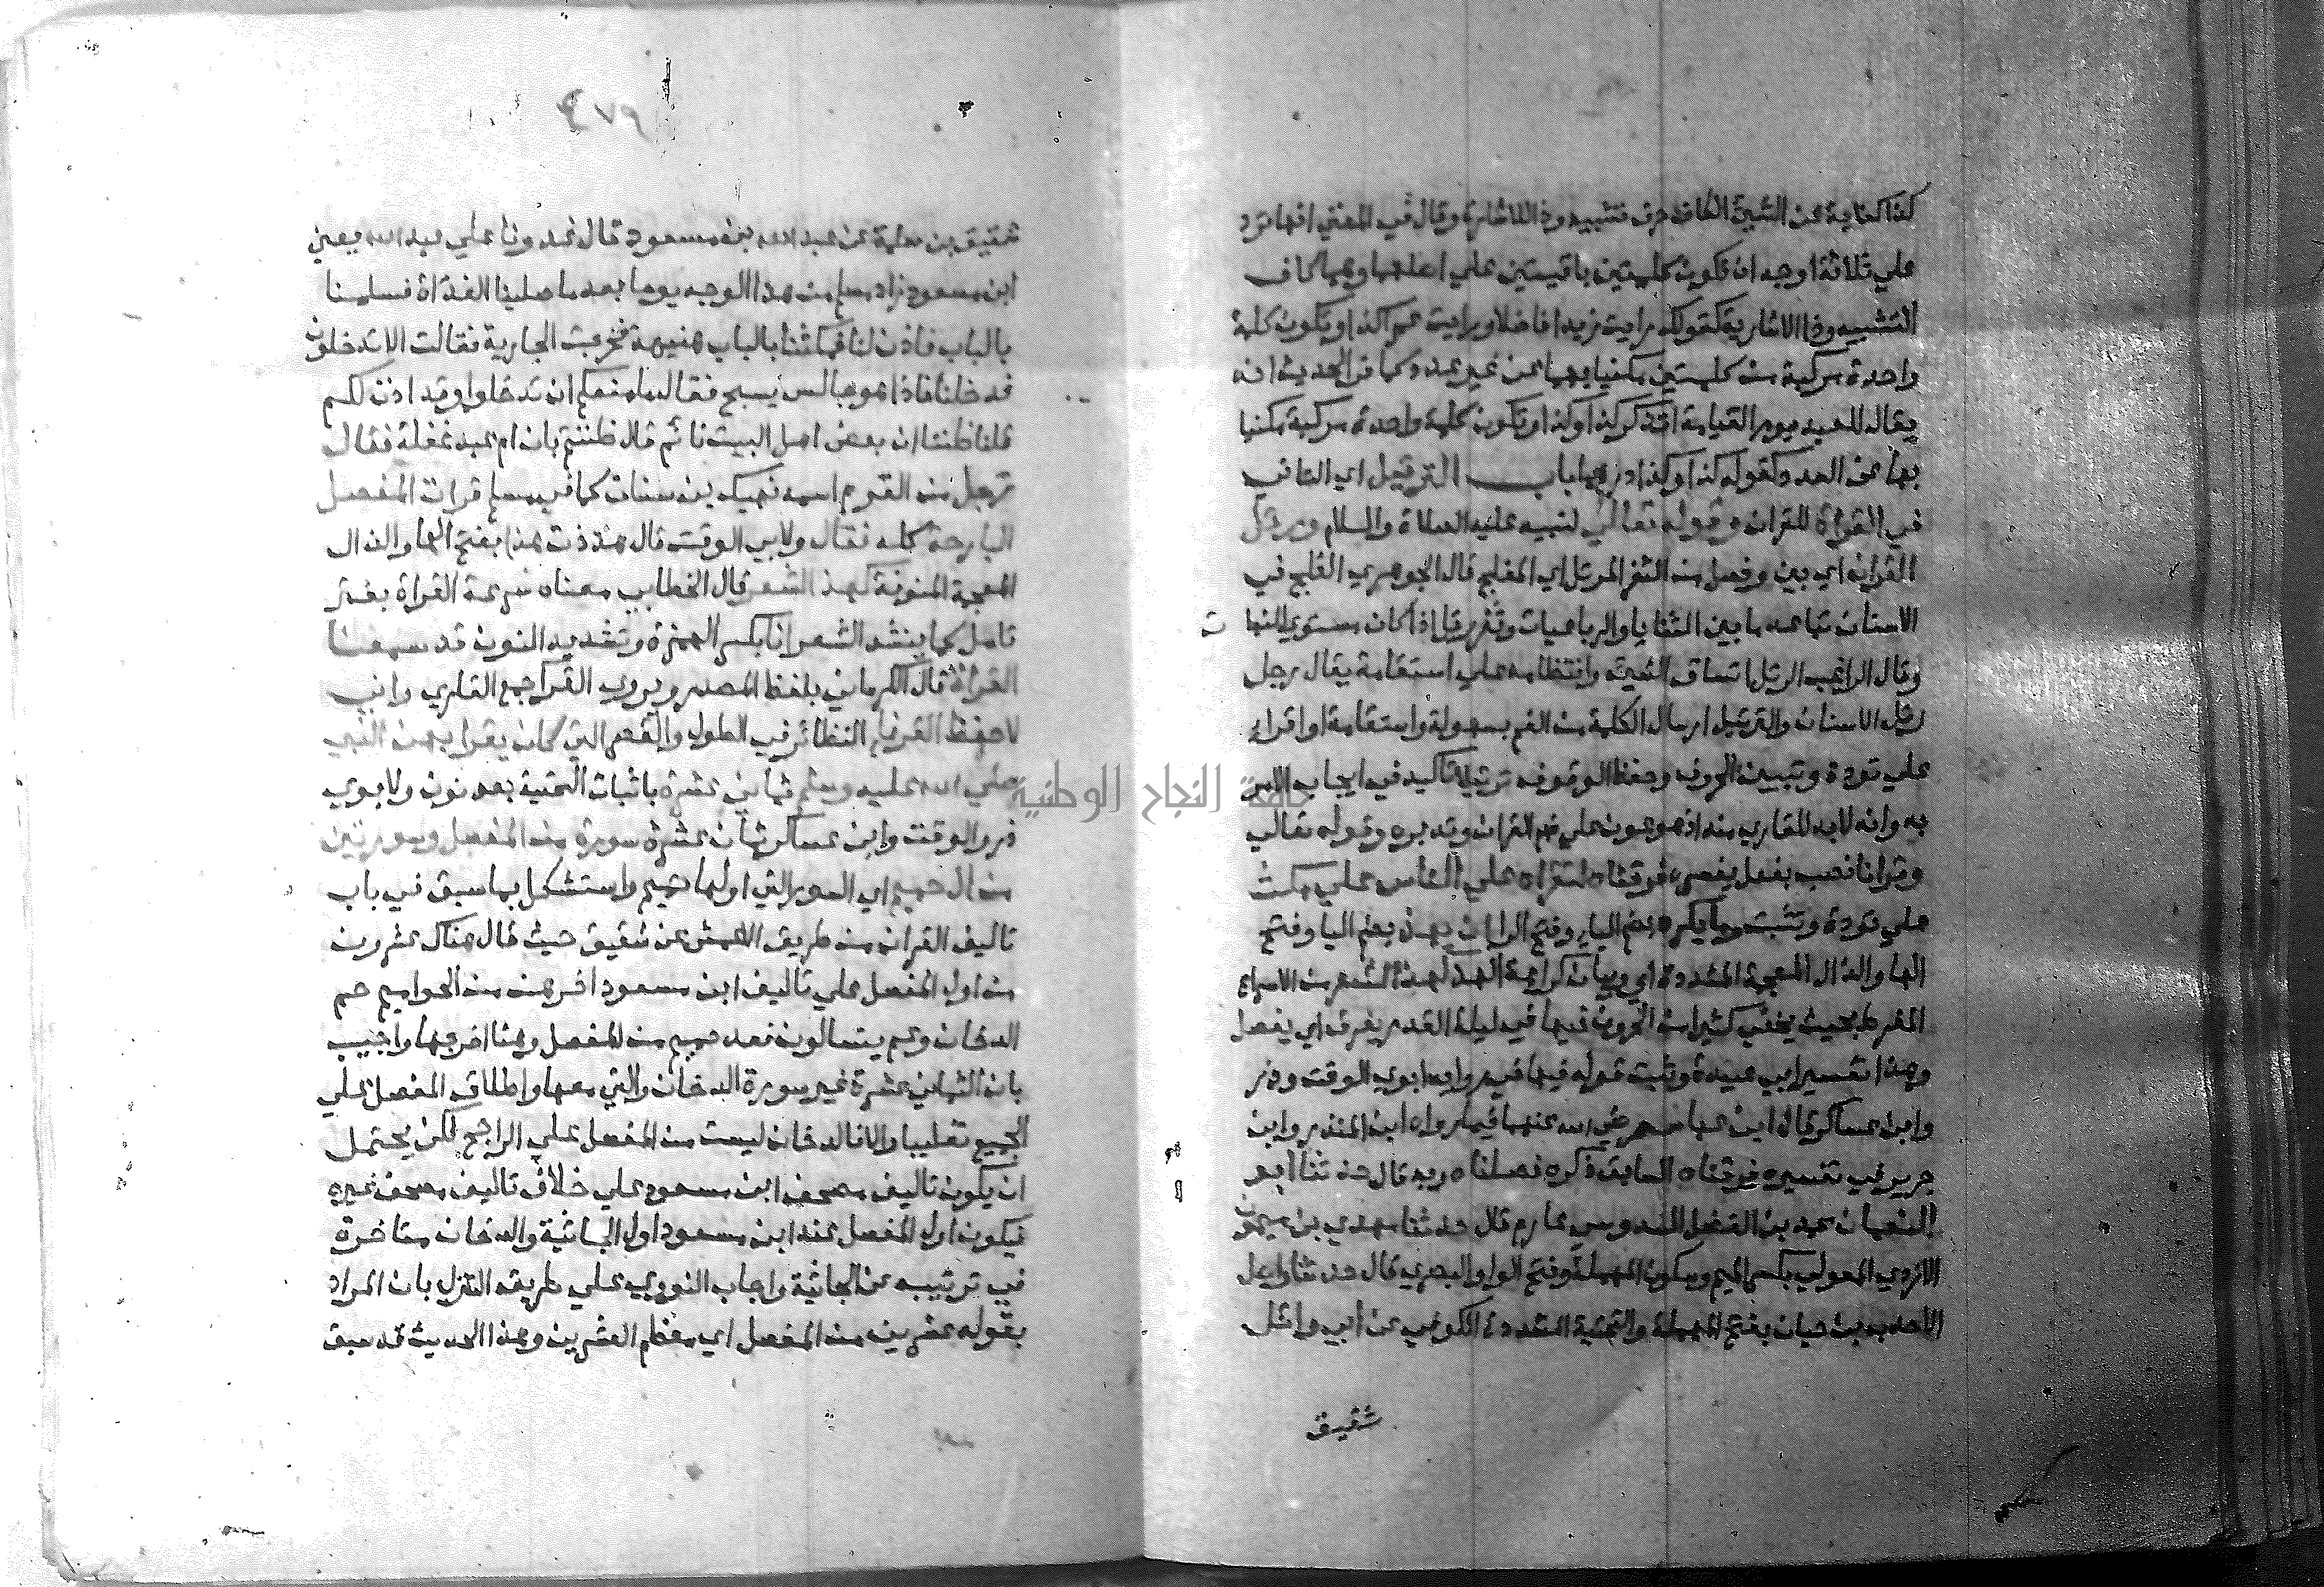 كذا كناية عن الشيئ الكاف حرف تشبيه وذا للاشارة وقال في المغني انها ترد
علي ثلاثة اوجه ان تكون كلمتين باقيتين علي اصلهما وهما كاف
التشبيه وذا الاشارية كقولك رايت زيدا فاضلا ورايت عمرا كذا او تكون كلمة
واحدة مركبة من كلمتين مكنيا بها عن غير عدد كما في الحديث انه
يقال للعبد يوم القيامة اتذكر كذا وكذا او تكون كلمة واحدة مركبة مكنيا
بها عن العدد كقوله كذا وكذا درهما باب الترتيل اي التاني
في القراة للقران وقوله تعالي لنبيه عليه الصلاة والسلام ورتل
القران اي بين وفصل من الثغر المرتل اي المفلج قال الجوهري الفلج في
الاسنان تباعد ما بين الثنايا والرباعيات وثغر رتل اذا كان مستوي النبات
وقال الراغب الرتل اتساق الشيئ وانتظامه علي استقامة يقال رجل
رتل الاسنان والترتيل ارسال الكلمة من الفم بسهولة واستقامة او اقراء
علي تودة وتبيين الحروف وحفظ الوقوف ترتيلا تاكيد في ايجاب الامر
به وانه لابد للقاري منه اذ هو عون علي فهم القران وتدبره وقوله تعالي
وقرانا نصب بفعل يفسره فرقناه لتقراه علي الناس علي مكث
علي تودة وتثبت وما يكره بضم الياء وفتح الراء ان يهذ بضم اليا وفتح
الها والذال المعجمة المشددة اي وبيان كراهة الهذ كهذ الشعر من الاسراع
المفرط بحيث يخفي كثير من الحروف فيها في ليلة القدر يفرق اي يفصل
وهذا تفسير ابي عبيدة وثبت قوله فيها في رواية ابوي الوقت وذر
وابن عساكر قال ابن عباس رضي الله عنهما فيما رواه ابن المنذر وابن
جرير في تفسيره فرقناه السابق ذكره فصلناه وبه قال حدثنا ابو
النعمان محمد بن الفضل السدوسي عارم قال حدثنا مهدي بن ميمون
الازدي المعولي بكسر الميم وسكون المهملة وفتح الواو البصري قال حدثنا واصل
الاحدب بن حيان بفتح المهملة والتحتية المشددة الكوفي عن ابي وائل
شقيق
٤٧٩
شقيق بن سلمة عن عبد الله بن مسعود قال غدونا علي عبد الله يعني
ابن مسعود زاد مسلم من هذا الوجه يوما بعد ما صلينا الغداة فسلمنا
بالباب فاذن لنا فمكثنا بالباب هنيهة فخرجت الجارية فقالت الا تدخلون
فدخلنا فاذا هو جالس يسبح فقال ما منعكم ان تدخلوا وقد اذن لكم
قلنا ظننا ان بعض اهل البيت نائم قال ظننتم بان ام عبد غفلة فقال
رجل من القوم اسمه نهيك بن سنان كما في مسلم قرات المفصل
البارحة كله فقال ولابي الوقت قال هذذت هذا بفتح الها والذال
المعجمة المنونة كهذ الشعر قال الخطابي معناه سرعة القراة بغير
تامل كما ينشد الشعر انا بكسر الهمزة وتشديد النون قد سمعنا
القراة قال الكرماني بلفظ المصدر ويروي القرا جمع القاري واني
لاحفظ القرناء النظائر في الطول والقصر التي كان يقرا بهن النبي
صلي الله عليه وسلم ثماني عشرة باثبات التحتية بعد نون ولابوي
ذر والوقت وابن عساكر ثمان عشرة سورة من المفصل وسورتين
من ال حميم اي السور التي اولها حميم واستشكل بما سبق في باب
تاليف القران من طريق الاعمش عن شقيق حيث قال هناك عشرون
من اول المفصل علي تاليف ابن مسعود اخرهن من الحواميم حم
الدخان وعم يتسالون فعد حميم من المفصل وهنا اخرجها واجيب
بان الثماني عشرة غير سورة الدخان والتي معها واطلاق المفصل علي
الجميع تغليبا والا فالدخان ليست من المفصل علي الراجح لكن يحتمل
ان يكون تاليف مصحف ابن مسعود علي خلاف تاليف مصحف غيره
فيكون اول المفصل عند ابن مسعود اول الجاثية والدخان متاخرة
في ترتيبه عن الجاثية واجاب النووي علي طريق التنزل بان المراد
بقوله عشرين من المفصل اي معظم العشرين وهذا الحديث قد سبق
جامعة النجاح الوطنية